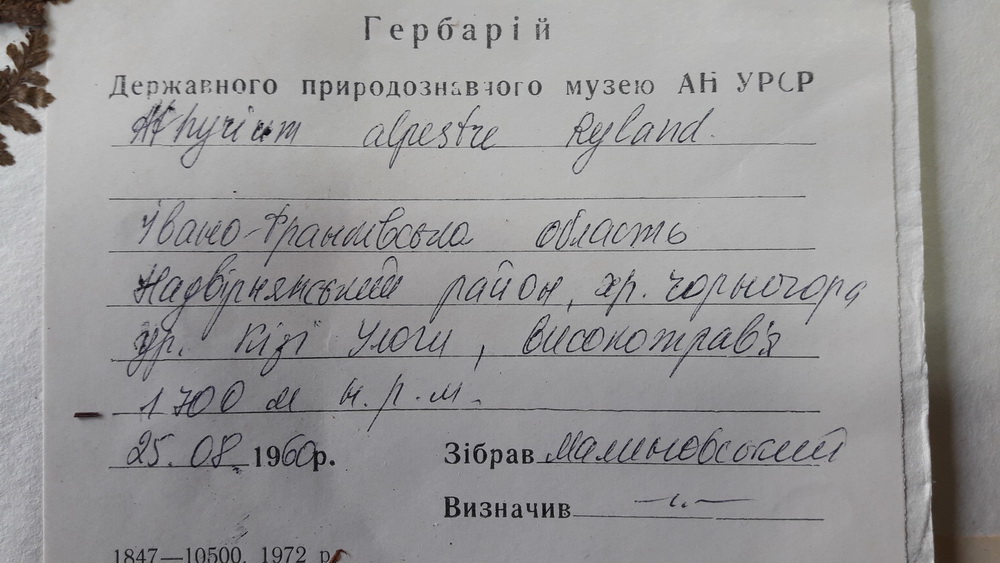 Гербарій
Державного природознавчого музею АН УРСР
Athyrium alpestre Ryland.
Івано-Франківська область
Надвірнянський район, хр. Чорногора
ур. Кізі Улоги, високотрав'я
1700 м н.р.м.
25.08.1960р. Зібрав Малиновський
Визначив —"—
1847—10500. 1972 р.